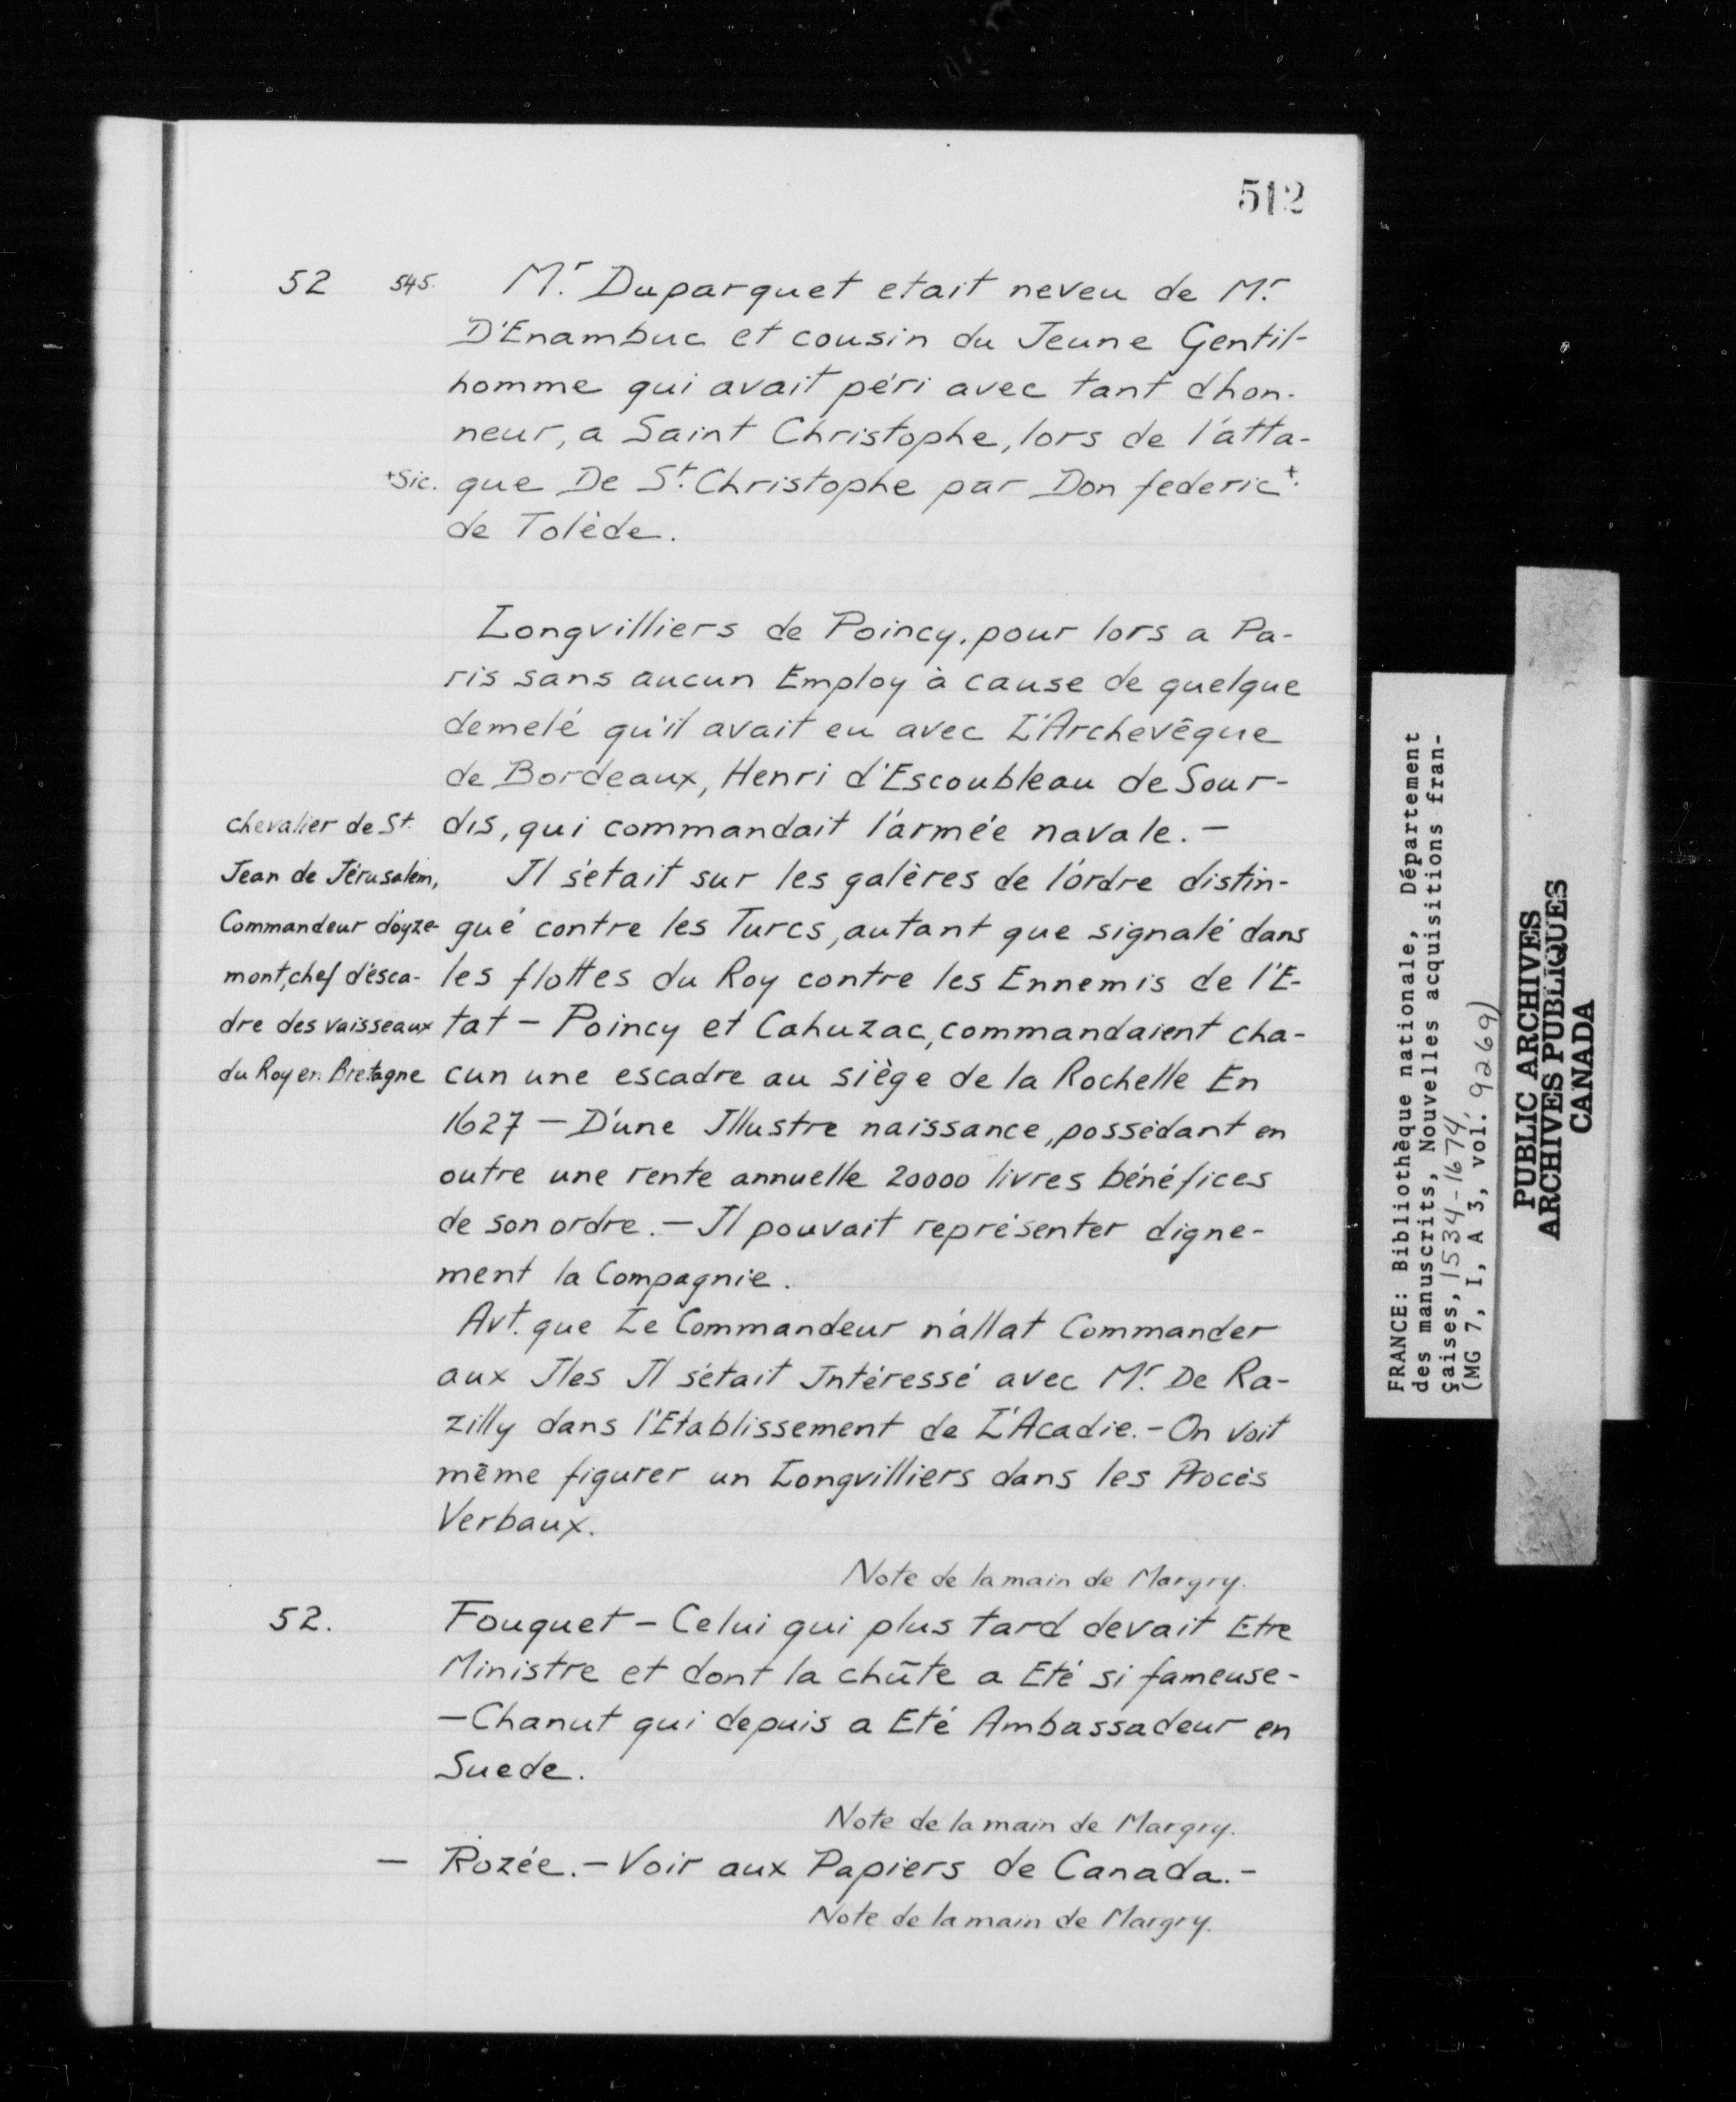 512
52 545. Mr. Duparquet etait neveu de Mr.
D'Enambuc et cousin du Jeune Gentil-
homme qui avait péri avec tant d'hon-
neur, a Saint Christophe, lors de l'atta-
+Sic. que De St. Christophe par Don federic+.
de Tolède.
Longvilliers de Poincy, pour lors a Pa-
ris sans aucun Employ à cause de quelque
demelé qu'il avait eu avec L'Archevêque
de Bordeaux, Henri d'Escoubleau de Sour-
dis, qui commandait l'armée navale. —
chevalier de St.
Jean de Jérusalem,
Commandeur d'oyze-
mont, chef d'esca-
dre des vaisseaux
du Roy en Bretagne
Il s'était sur les galères de l'ordre distin-
gué contre les Turcs, autant que signalé dans
les flottes du Roy contre les Ennemis de l'E-
tat — Poincy et Cahuzac, commandaient cha-
cun une escadre au siège de la Rochelle En
1627 — D'une Illustre naissance, possédant en
outre une rente annuelle 20000 livres bénéfices
de son ordre. — Il pouvait représenter digne-
ment la Compagnie.
Avt. que Le Commandeur n'allat Commander
aux Iles Il s'était Intéressé avec Mr. De Ra-
zilly dans l'Etablissement de L'Acadie. — On voit
même figurer un Longvilliers dans les Procès
Verbaux.
Note de la main de Margry.
52. Fouquet — Celui qui plus tard devait Etre
Ministre et dont la chûte a Eté si fameuse -
— Chanut qui depuis a Eté Ambassadeur en
Suede.
Note de la main de Margry.
— Rozée. — Voir aux Papiers de Canada. -
Note de la main de Margry.
FRANCE: Bibliothèque nationale, Département
des manuscrits, Nouvelles acquisitions fran-
çaises, 1534-1674,
(MG 7, I, A 3, vol. 9269)
PUBLIC ARCHIVES
ARCHIVES PUBLIQUES
CANADA